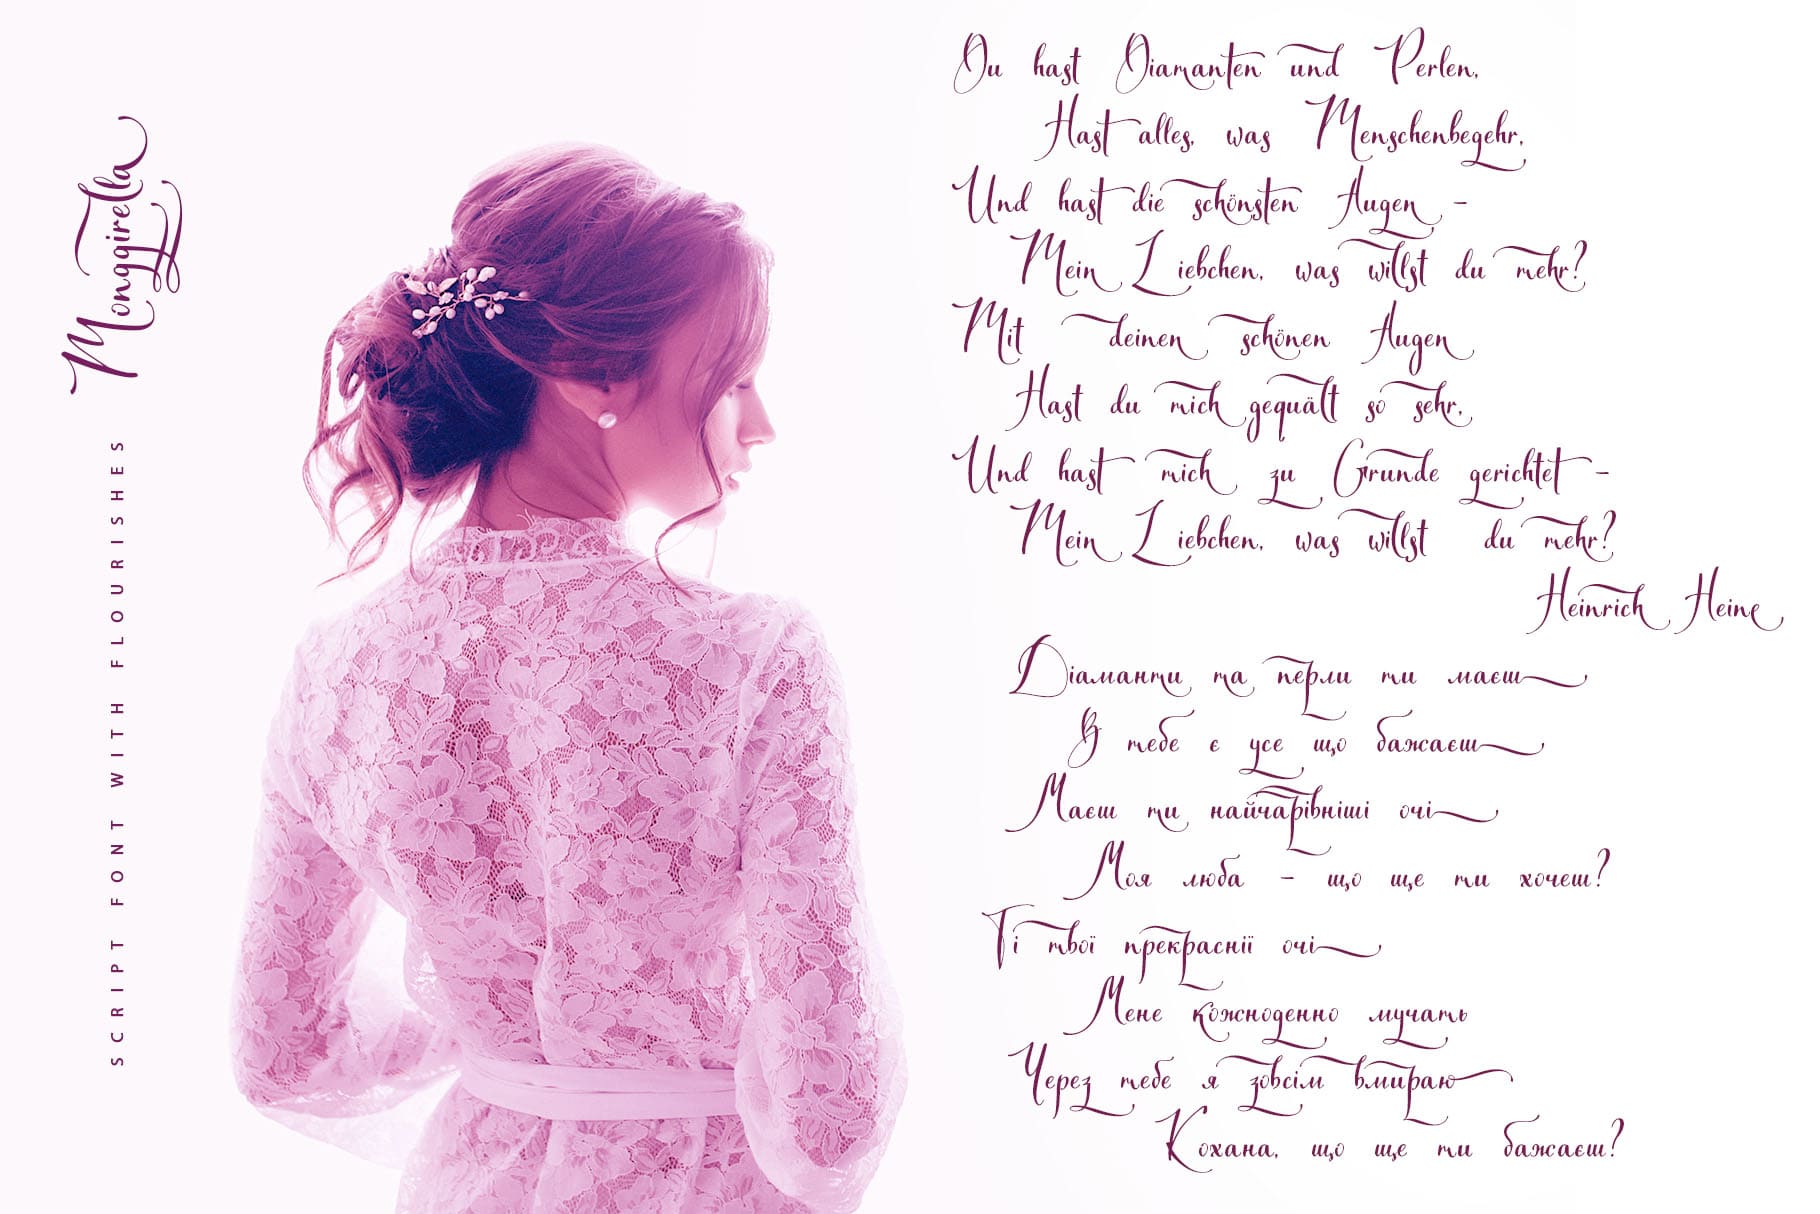 Monggirella
SCRIPT FONT WITH FLOURISHES
Du hast Diamanten und Perlen,
Hast alles, was Menschenbegehr,
Und hast die schönsten Augen –
Mein Liebchen, was willst du mehr?
Mit deinen schönen Augen
Hast du mich gequält so sehr,
Und hast mich zu Grunde gerichtet –
Mein Liebchen, was willst du mehr?
Heinrich Heine
Діаманти та перли ти маєш
В тебе є усе що бажаєш
Маєш ти найчарівніші очі
Моя люба – що ще ти хочеш?
Ті твої прекраснії очі
Мене кожноденно мучать
Через тебе я зовсім вмираю
Кохана, що ще ти бажаєш?